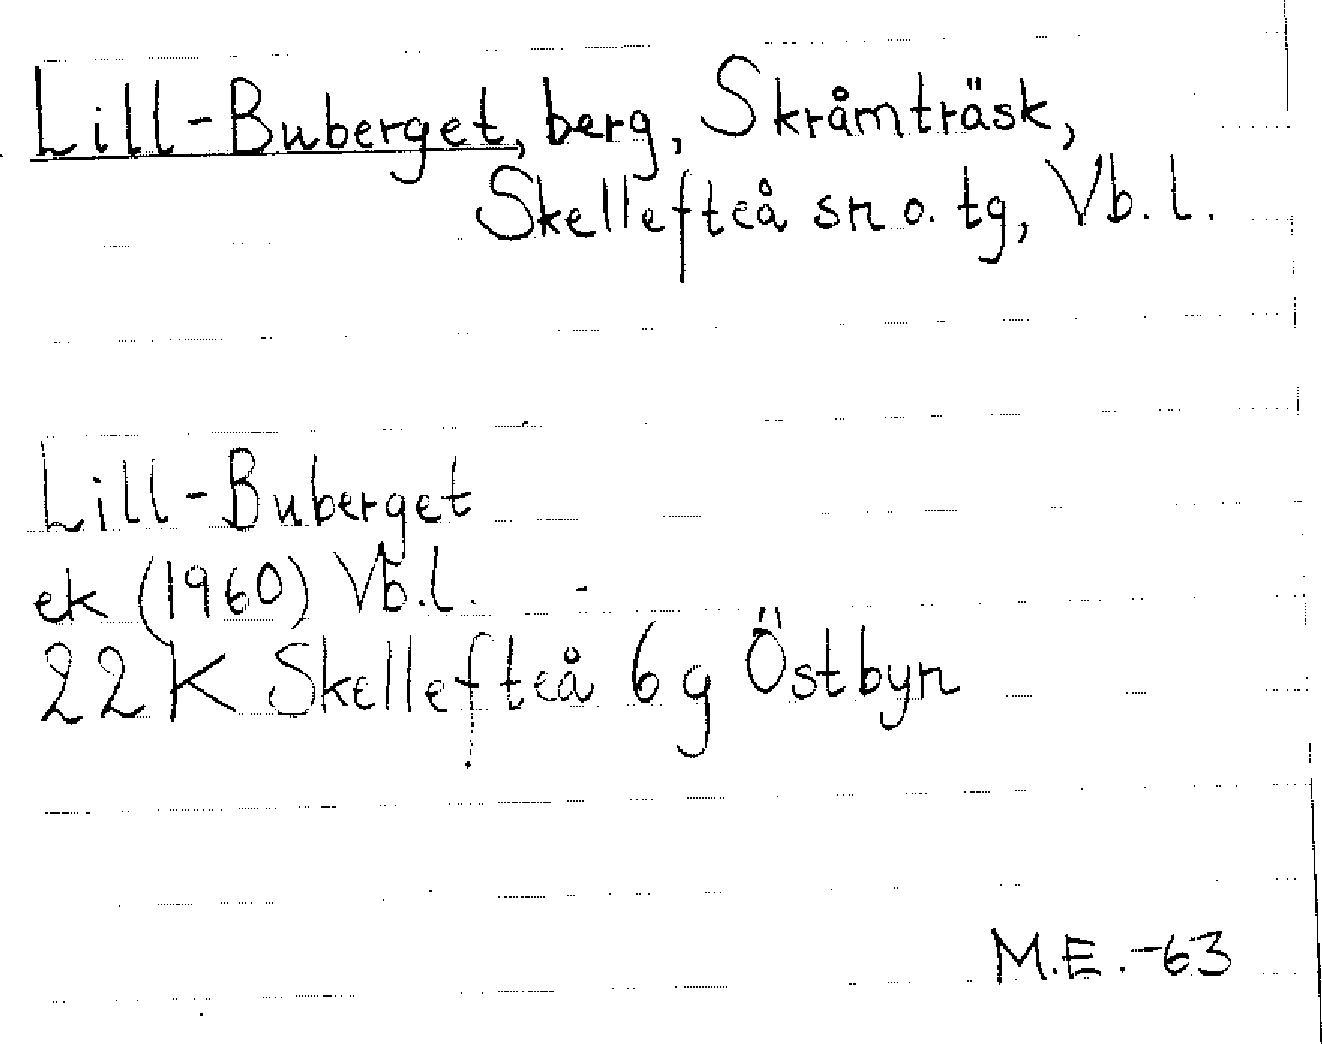 Lill-Buberget, berg, Skråmträsk,
Skellefteå sn o. tg, Vb. l.
Lill-Buberget
ek (1960) Vb.l.
22 K Skellefteå 6 g Östbyn
M.E. -63